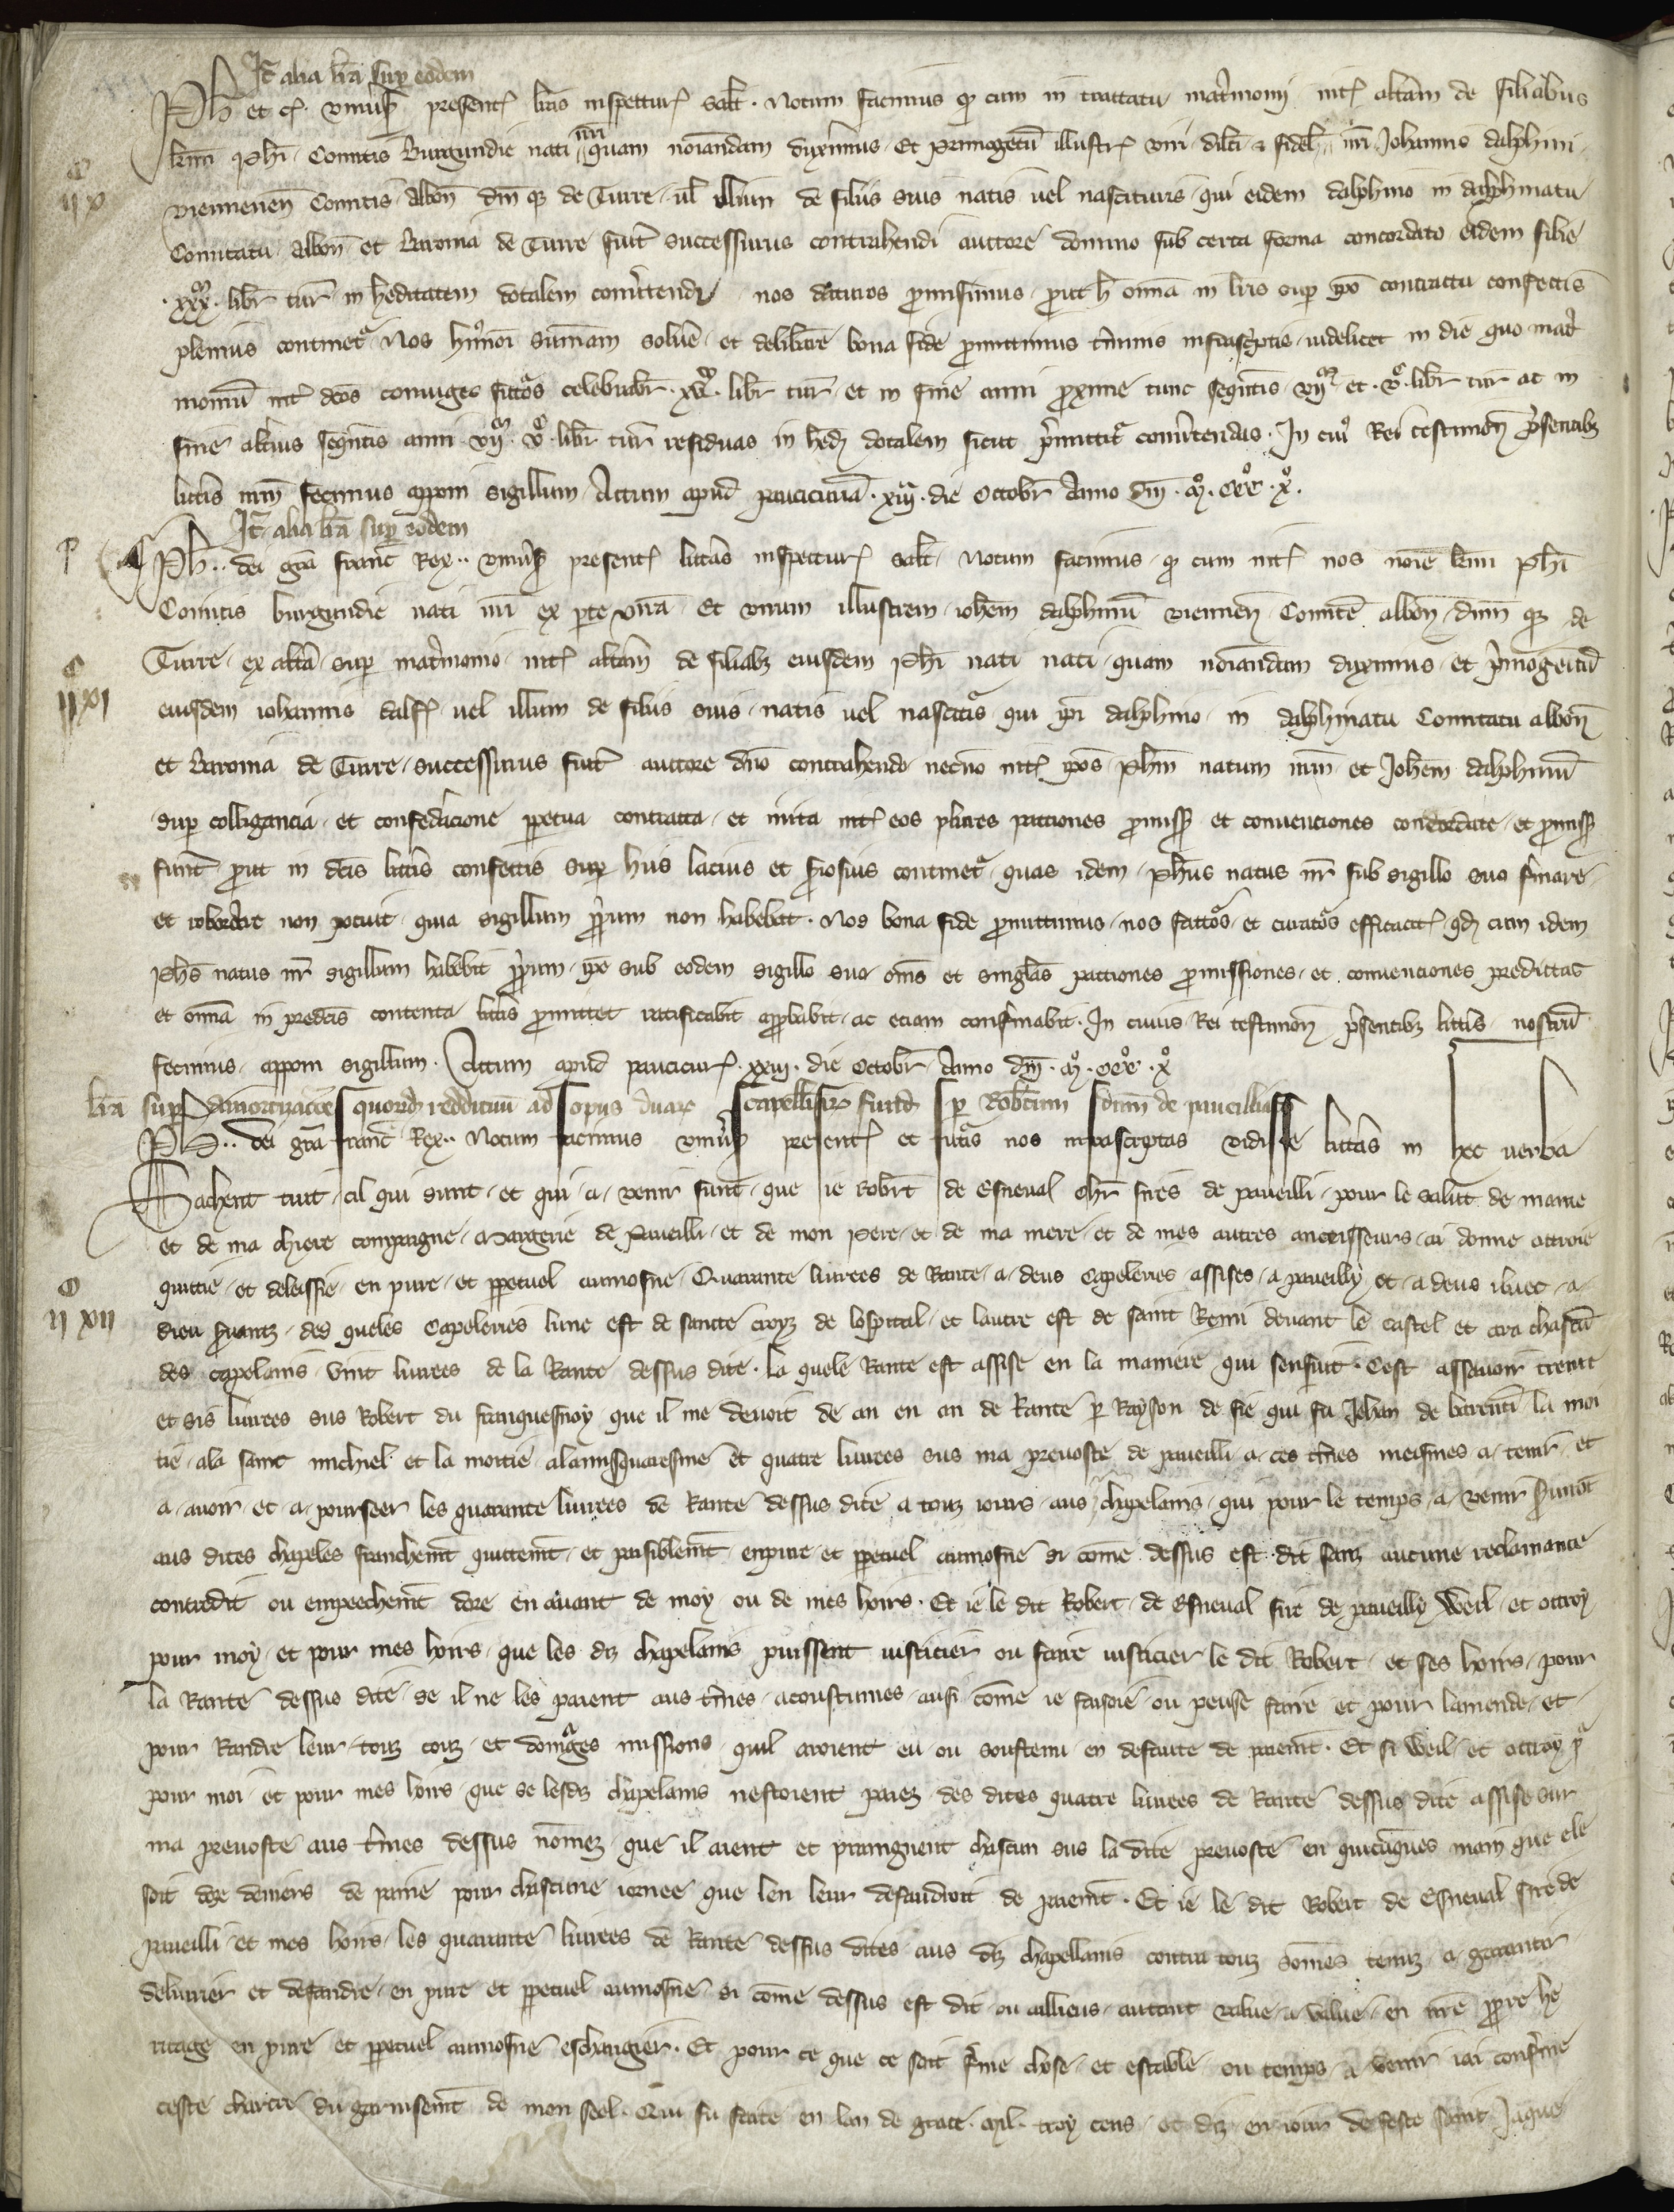 It alia lra sup eodem
Ph et c. univis present litas inspectur salt. Notum facimus q cum in tractatu matrimonii int altam de filiabus
kmi Phi Comitis Burgundie nati nri quam noiandam duxerimus et primogetu illustr viri dilci & fidel nri Johannis dalphini
viennen Comitis Albon dni q de Turre ul illum de filiis suis natis vel nascituris qui eidem dalphino in dalphinatu
Comitatu Albon et Baronia de Turre fuit successurus contrahendi auctore domino sub certa forma concordato eidem filie
xxx m libr tur in heditatem dotalem convertendas nos daturos promisimus prout h omia in lris sup ipo contractu confectis
plenius continet Nos huiusmoi summam solvere et deliberare bona fide promittimus tminis infrascriptis videlicet in die quo matri
moniu int dcos coniuges futuros celebrabitur xv m libr tur et in fine anni proxime tunc sequntis vii m et v c libr tur ac in
fine alterius sequntis anni vii m v c libr tur residuas in hed dotalem sicut premittit convertendas. In cui Rei testimon presentibz
littis nrm fecimus apponi sigillum Actum apud xiii die Octobr Anno dni mo ccco xo
It alia lra sup eodem
Ph dei gra Franc Rex univis present littas inspectur salt Notum facimus q cum int nos noie kmi Phi
Comitis burgundie nati nri ex parte una et virum illustrem iohem dalphinu viennen Comite albon dnm q de
Turre ex alta sup matrimonio int altam de filiabz eiusdem Phi nati nati quam noiandam duximus et primogenitu
eiusdem iohannis dalf vel illum de filiis suis natis vel nascitis qui ipi dalphino in dalphinatu Comitatu albon
et Baronia de Turre successurus fuit auctore dno contrahendo necno int ipos Phm natum nrm et Johem dalphinu
sup colligancia et confederacione ppetua contracta et inita int eos plures pactiones promiss et convenciones concordate et promiss
fuint prout in dcis littis confectis sup hiis lacius et seriosius continet quas idem Phus natus nr sub sigillo suo firmare
et roborare non potuit quia sigillum proprium non habebat. Nos bona fide promittimus nos facturos et curaturos efficacit qd cum idem
Phs natus nr sigillum habebit proprium ipe sub eodem sigillo suo oms et singlas pactiones promissiones et convenciones predictas
et omia in predcis contenta littis promittet ratificabit approbabit ac eciam confirmabit. In cuius Rei testimon presentibz littis nostru
fecimus apponi sigillum. Actum apud xxiii die Octobr Anno dni mo ccco xo
lra sup damortizacoe quord reddituu ad opus duar capellisr fund p Robtum dnm de paveilliaco
Ph dei gra Franc Rex Notum facimus univis present et futuris nos infrascriptas vidisse littas in hec verba
Sachent tuit cil qui sunt et qui a venir sunt que ie Robert de Esneval chr sires de paveilli pour le salut de mame
et de ma chiere compaigne Margerie de Paveilli et de mon pere et de ma mere et de mes autres ancesseurs ai donne ottroie
quittie et delessie en pure et ppetuel aumosne Quarante livrees de Rante a deus Capeleries assises a paveilly et a deus iluec a
dieu servantz des queles Capeleries lune est de sainte croyz de lospital et lautre est de saint Remi devant le castel et ara chascu
des capelains vint livrees de la Rante dessus dite. La quele Rante est assise en la maniere qui sensuit. Cest assavoir trente
et sis livrees sus Robert du franquesnoy que il me devoit de an en an de Rante p Rayson de fie qui fu Jehan de barenti la moi
tie ala saint michiel et la moitie alamisquaresme et quatre livrees sus ma prevoste de paveilli a ces tmes meismes a tenir et
a avoir et a pourseer les quarante livrees de Rante dessus dite a touz iours aus chapelains qui pour le temps a venir seront
aus dites chapeles franchemt quittemt et paisiblemt enpure et ppetuel aumosne si come dessus est dit sanz aucune reclamance
contredit ou empeechemt dore en avant de moy ou de mes hoirs. Et ie le dit Robert de Esneval sire de paveilly weil et ottroy
pour moy et pour mes hoirs que les diz chapelains puissent iusticier ou faire iusticier le dit Robert et ses hoirs pour
la Rante dessus dite se il ne les paient aus tmes acoustumes ausi come ie faisoie ou peusse faire et pour lamende et
pour Randre leur touz couz et domages missions quil avoient eu ou soustenu en defaute de paiemt. Et si weil et ottroy
pour moi et pour mes hoirs que se lesdiz chapelains nestoient paiez des dites quatre livrees de Rante dessus dite assise sur
ma prevoste aus tmes dessus nomez que il aient et praingnent chascun sus la dite prevoste en quicuqes main que ele
soit doze deniers de paine pour chascune iornee que len leur defaudroit de paiemt. Et ie le dit Robert de Esneval sire de
paveilli et mes hoirs les quarante livrees de Rante dessus dites aus diz chapellains contre touz somes tenuz a garantir
delivrer et defandre en pure et ppetuel aumosne si come dessus est dit ou ailliens autant value a value en nre ppre he
ritage en pure et ppetuel aumosne eschangier. Et pour ce que ce soit ferme chose et estable ou temps a venir iai conferme
ceste chartre du garnisemt de mon seel. Qui fu faite en lan de grace mil troy cens et diz en iour de feste saint Jaque